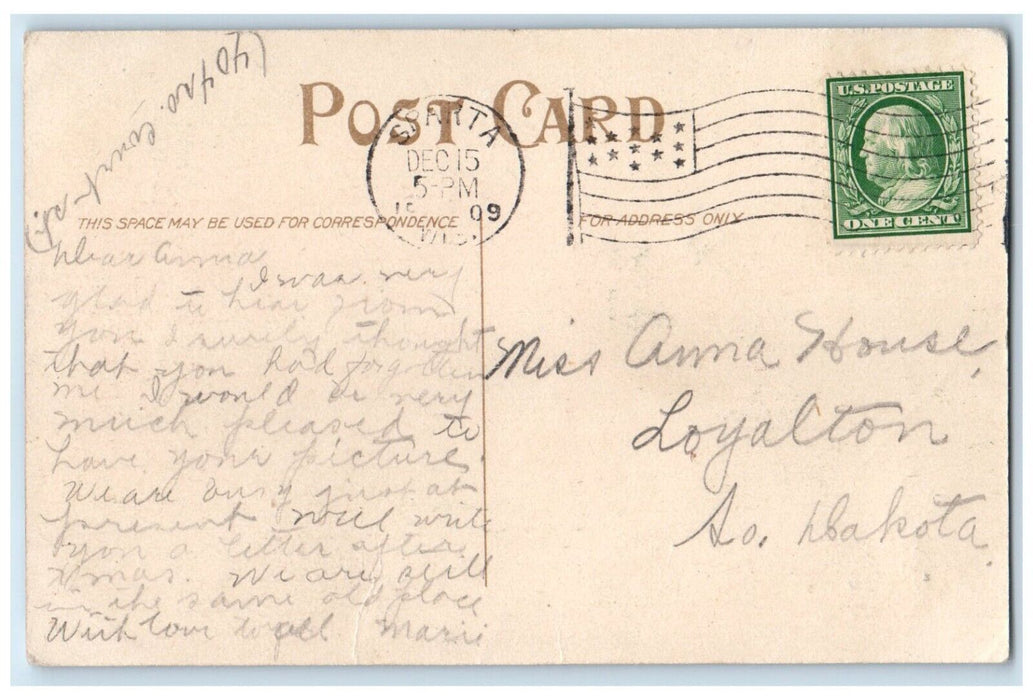 POST CARD
SPARTA
DEC 15
5-PM
09
WIS.
U.S. POSTAGE
ONE CENT
THIS SPACE MAY BE USED FOR CORRESPONDENCE
FOR ADDRESS ONLY
(404 No. Court St.)
Dear Anna
I was very
glad to hear from
you I surely thought
that you had forgotten
me I would be very
much pleased to
have your picture.
We are busy just at
present will write
you a letter after
Xmas. We are still
in the same old place
With love to all Marie
Miss Anna House,
Loyalton
So. Dakota.